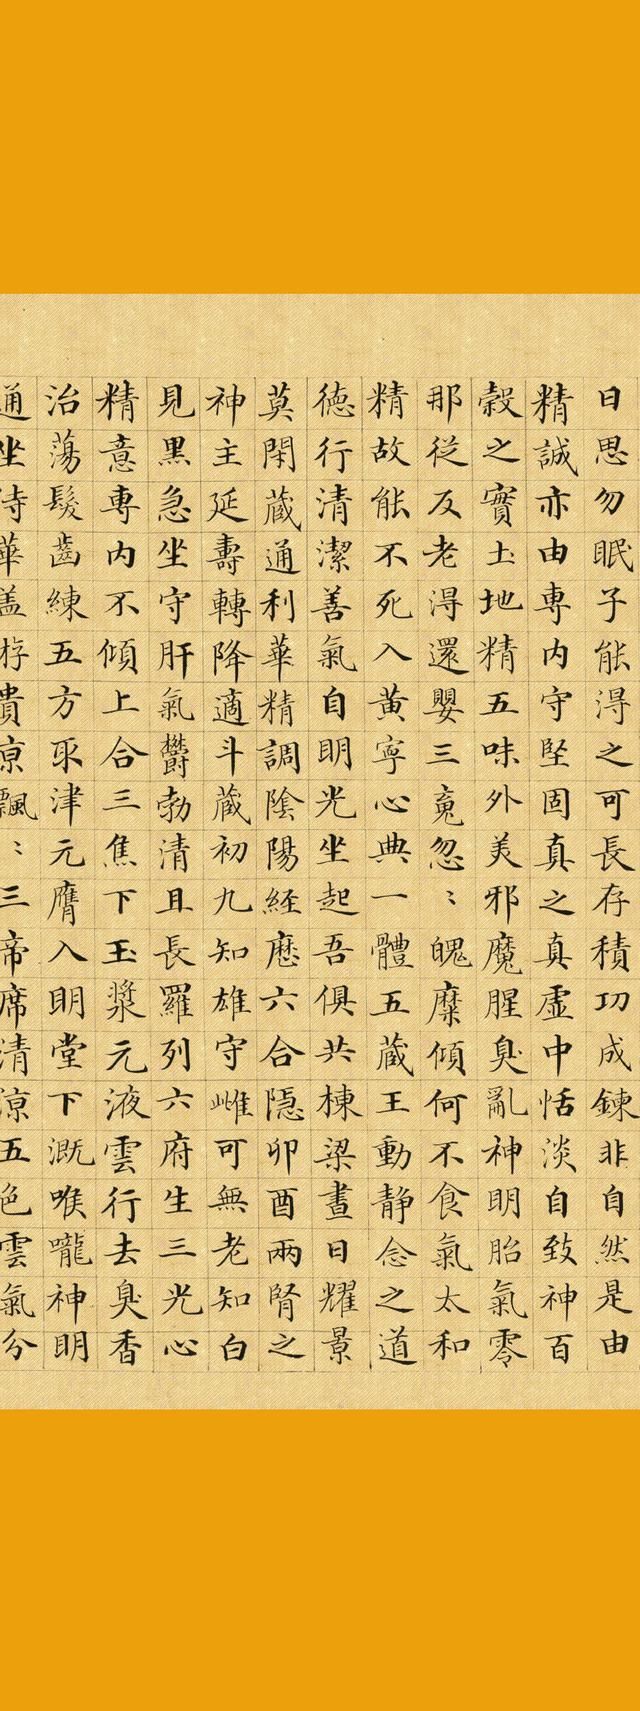 日思勿眠子能淂之可長存積功成鍊非自然是由
精誠亦由専内守堅固真之真虛中恬淡自致神百
穀之實土地精五味外美邪魔腥臭亂神明胎氣零
那従反老淂還嬰三䰟忽〻魄糜傾何不食氣太和
精故能不死入黄寧心典一體五蔵王動静念之道
徳行清潔善氣自明光坐起吾俱共棟梁晝日耀景
莫閑蔵通利華精調陰陽経歷六合隱卯酉兩腎之
神主延壽轉降適斗蔵初九知雄守雌可無老知白
見黑急坐守肝氣欝勃清且長羅列六府生三光心
精意専内不傾上合三焦下玉漿元液雲行去臭香
治蕩髮齒練五方取津元膺入明堂下溉喉嚨神明
通坐侍華盖游貴亰飄〻三帝席清涼五色雲氣分